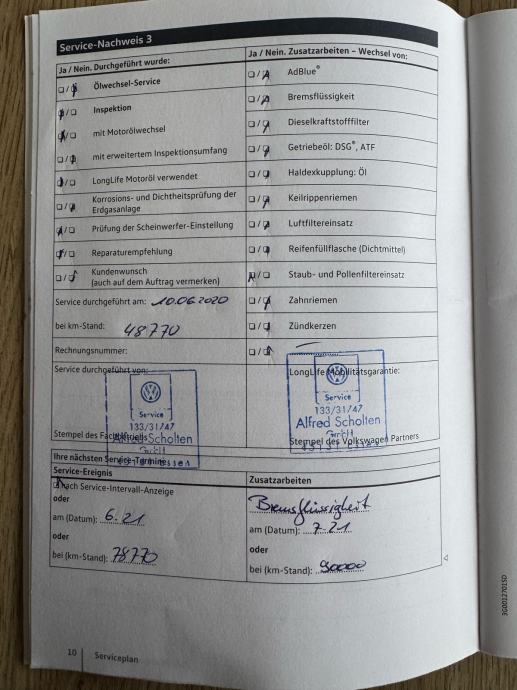 Service-Nachweis 3
Ja / Nein. Durchgeführt wurde:
Ölwechsel-Service
Inspektion
mit Motorölwechsel
mit erweitertem Inspektionsumfang
LongLife Motoröl verwendet
Korrosions- und Dichtheitsprüfung der
Erdgasanlage
Prüfung der Scheinwerfer-Einstellung
Reparaturempfehlung
Kundenwunsch
(auch auf dem Auftrag vermerken)
Service durchgeführt am: 10.06.2020
bei km-Stand: 48770
Rechnungsnummer:
Service durchgeführt von:
Service
133/31/47
Alfred Scholten
GmbH
Essen
Stempel des Fachbetriebs
Ja / Nein. Zusatzarbeiten – Wechsel von:
AdBlue®
Bremsflüssigkeit
Dieselkraftstofffilter
Getriebeöl: DSG®, ATF
Haldexkupplung: Öl
Keilrippenriemen
Luftfiltereinsatz
Reifenfüllflasche (Dichtmittel)
Staub- und Pollenfiltereinsatz
Zahnriemen
Zündkerzen
LongLife Mobilitätsgarantie:
Service
133/31/47
Alfred Scholten
GmbH
Essen
Stempel des Volkswagen Partners
Ihre nächsten Service-Termine
Service-Ereignis
nach Service-Intervall-Anzeige
oder
am (Datum): 6.21
oder
bei (km-Stand): 78770
Zusatzarbeiten
Bremsflüssigkeit
am (Datum): 7.21
oder
bei (km-Stand): 90000
10 Serviceplan
3G0012701SD